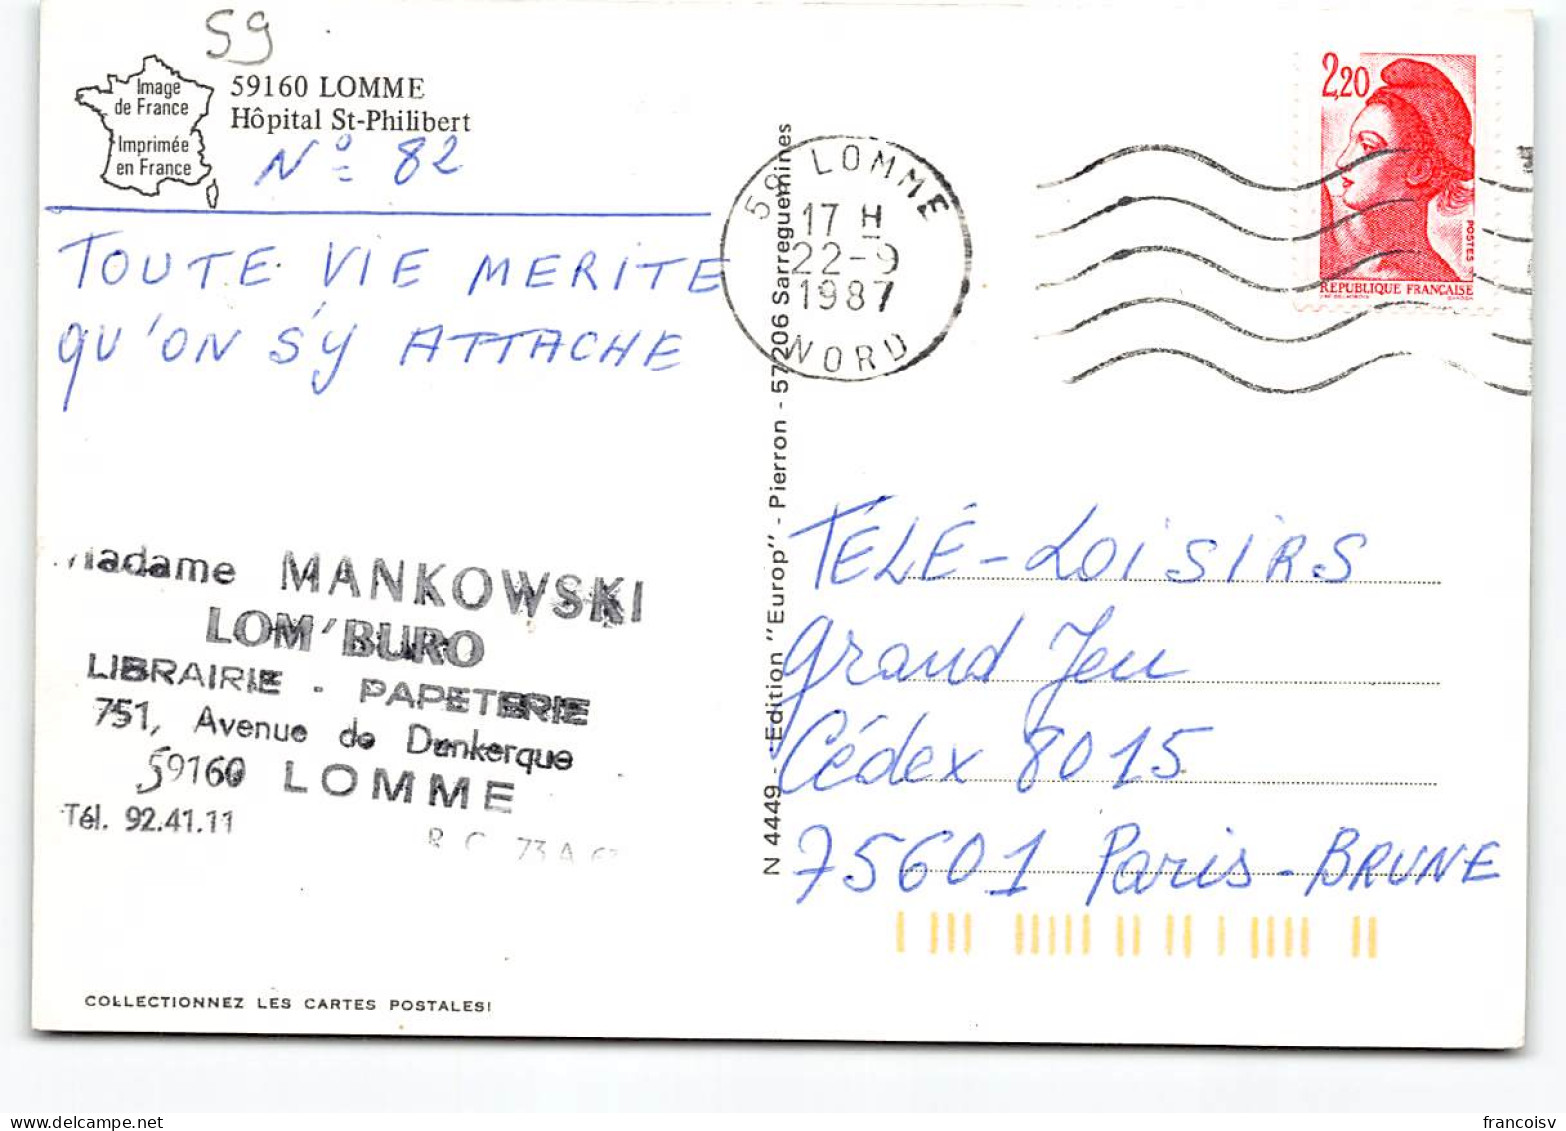 59
Image
de France
Imprimée
en France
59160 LOMME
Hôpital St-Philibert
Nº 82
TOUTE VIE MERITE
QU'ON S'Y ATTACHE
Madame MANKOWSKI
LOM'BURO
LIBRAIRIE - PAPETERIE
751, Avenue de Dunkerque
59160 LOMME
Tél. 92.41.11
R.C. 73 A
COLLECTIONNEZ LES CARTES POSTALES!
N 4449 - Edition "Europ" - Pierron - 57206 Sarreguemines
59 LOMME
17 H
22-9
1987
NORD
2,20
POSTES
REPUBLIQUE FRANÇAISE
TÉLÉ-LOISIRS
Grand Jeu
Cédex 8015
75601 Paris-BRUNE
francoisv